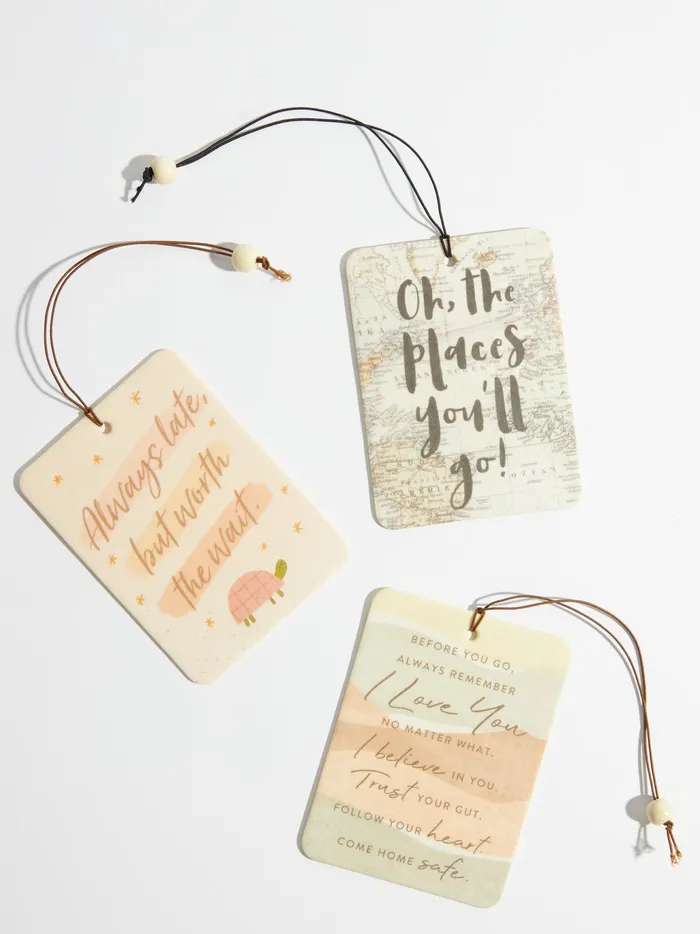 Oh, the
places
you'll
go!
OZEAN
Always late,
but worth
the wait.
BEFORE YOU GO,
ALWAYS REMEMBER
I Love You
NO MATTER WHAT.
I believe IN YOU.
Trust YOUR GUT.
FOLLOW YOUR heart.
COME HOME safe.